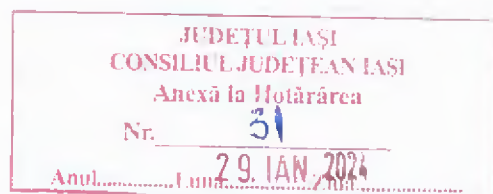 JUDEȚUL IAȘI
CONSILIUL JUDEȚEAN IAȘI
Anexă la Hotărârea
Nr. 31
Anul........Luna 29. IAN. 2024 Ziua........